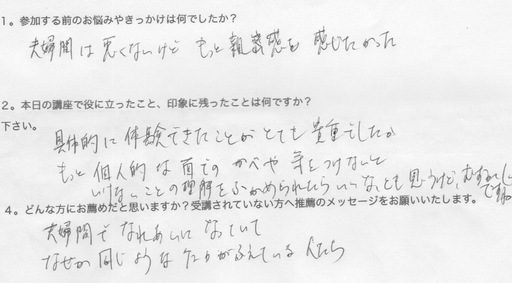 1。参加する前のお悩みやきっかけは何でしたか？
夫婦間は悪くないけど もっと親密感を感じたかった
2。本日の講座で役に立ったこと、印象に残ったことは何ですか？
下さい。
具体的に体験できたことがとても貴重でしたが
もっと個人的な面での かべや 手をつけないと
いけないことの理解をふかめられたらいいな、とも思うけど、むずかしい
ですね
4。どんな方にお薦めだと思いますか？受講されていない方へ推薦のメッセージをお願いいたします。
夫婦間で なれあいに なっていて
なぜか 同じような ケンカがふえている 人たち